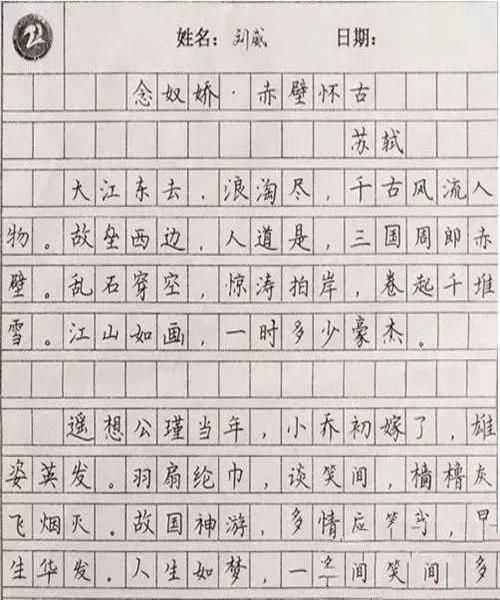 姓名：刘威 日期：
念奴娇·赤壁怀古
苏轼
大江东去，浪淘尽，千古风流人
物。故垒西边，人道是，三国周郎赤
壁。乱石穿空，惊涛拍岸，卷起千堆
雪。江山如画，一时多少豪杰。
遥想公瑾当年，小乔初嫁了，雄
姿英发。羽扇纶巾，谈笑间，樯橹灰
飞烟灭。故国神游，多情应
生华发。人生如梦，一间笑间，多